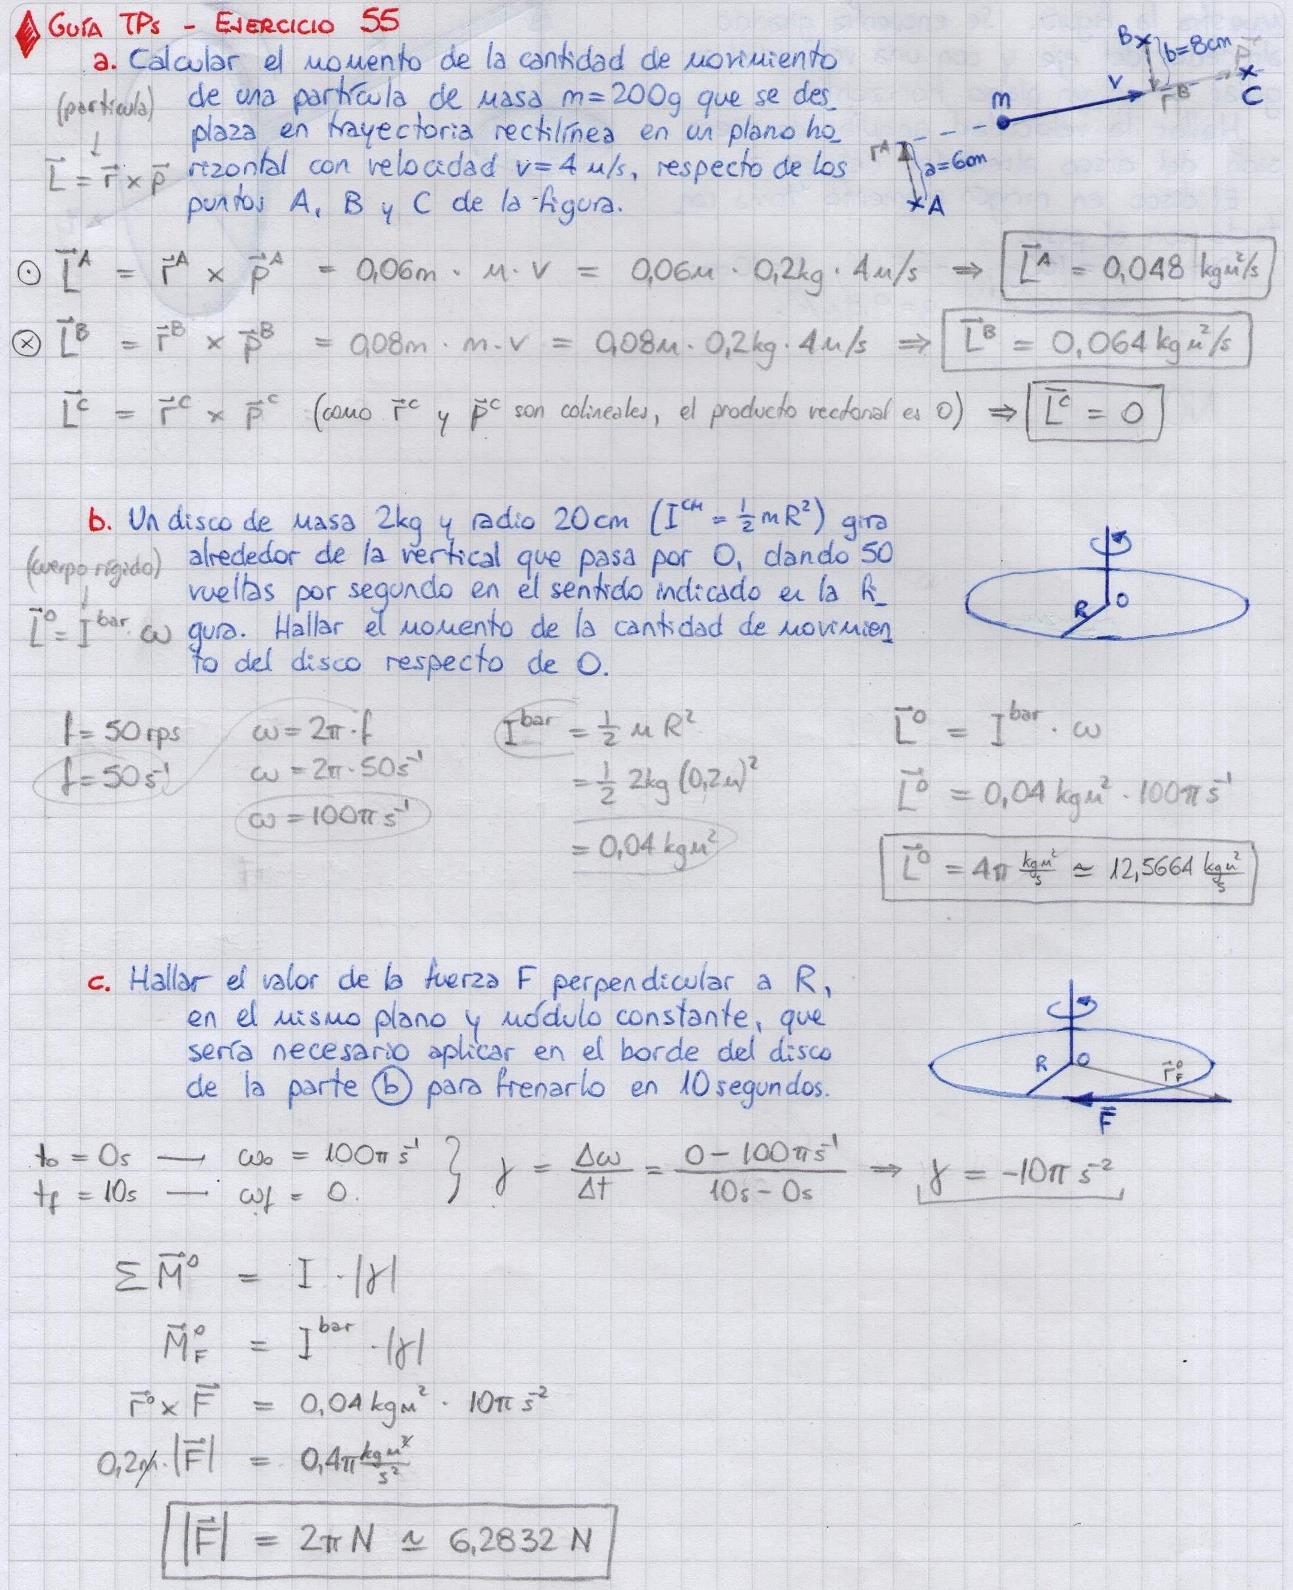 GUÍA TPs - EJERCICIO 55
a. Calcular el momento de la cantidad de movimiento
de una partícula de masa m=200g que se des_
plaza en trayectoria rectilínea en un plano ho_
rizontal con velocidad v=4 m/s, respecto de los
puntos A, B y C de la figura.
(partícula)
↓
L⃗ = r⃗ × p⃗
B b=8cm p⃗
v r⃗ᴮ C
m
r⃗ᴬ a=6cm
A
⊙ L⃗ᴬ = r⃗ᴬ × p⃗ᴬ = 0,06m · m · v = 0,06m · 0,2kg · 4m/s ⇒ L⃗ᴬ = 0,048 kgm²/s
⊗ L⃗ᴮ = r⃗ᴮ × p⃗ᴮ = 0,08m · m · v = 0,08m · 0,2kg · 4m/s ⇒ L⃗ᴮ = 0,064 kgm²/s
L⃗ᶜ = r⃗ᶜ × p⃗ᶜ (como r⃗ᶜ y p⃗ᶜ son colineales, el producto vectorial es 0) ⇒ L⃗ᶜ = 0
b. Un disco de masa 2kg y radio 20cm (Iᶜᴹ = ½ mR²) gira
alrededor de la vertical que pasa por O, dando 50
vueltas por segundo en el sentido indicado en la fi_
gura. Hallar el momento de la cantidad de movimien
to del disco respecto de O.
(cuerpo rígido)
↓
L⃗⁰ = Iᵇᵃʳ · ω
R O
f = 50 rps
f = 50 s⁻¹
ω = 2π · f
ω = 2π · 50 s⁻¹
ω = 100π s⁻¹
Iᵇᵃʳ = ½ m R²
= ½ 2kg (0,2m)²
= 0,04 kgm²
L⃗⁰ = Iᵇᵃʳ · ω
L⃗⁰ = 0,04 kgm² · 100π s⁻¹
L⃗⁰ = 4π kgm²/s ≃ 12,5664 kgm²/s
c. Hallar el valor de la fuerza F perpendicular a R,
en el mismo plano y módulo constante, que
sería necesario aplicar en el borde del disco
de la parte ⓑ para frenarlo en 10 segundos.
R O r⃗⁰F
F⃗
t₀ = 0s — ω₀ = 100π s⁻¹ } γ = Δω/Δt = (0 - 100π s⁻¹)/(10s - 0s) ⇒ γ = -10π s⁻²
tf = 10s — ωf = 0.
Σ M⃗⁰ = I · |γ|
M⃗⁰F = Iᵇᵃʳ · |γ|
r⃗⁰ × F⃗ = 0,04 kgm² · 10π s⁻²
0,2m · |F⃗| = 0,4π kgm²/s²
|F⃗| = 2π N ≃ 6,2832 N